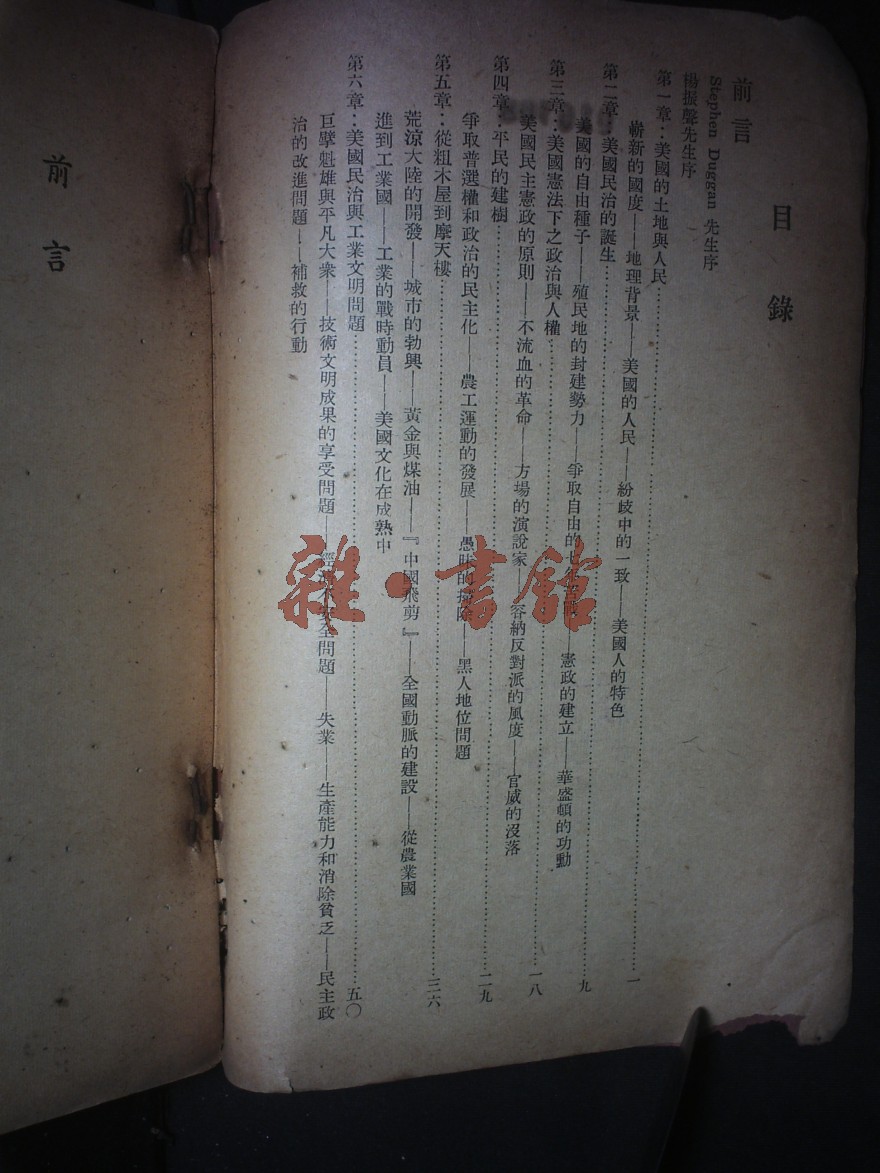 目錄
前言
Stephen Duggan 先生序
楊振聲先生序
第一章：美國的土地與人民…一
嶄新的國度——地理背景——美國的人民——紛歧中的一致——美國人的特色
第二章：美國民治的誕生…九
美國的自由種子——殖民地的封建勢力——爭取自由的——憲政的建立——華盛頓的功勳
第三章：美國憲法下之政治與人權…一八
美國民主憲政的原則——不流血的革命——方場的演說家——容納反對派的風度——官威的沒落
第四章：平民的建樹…二九
爭取普選權和政治的民主化——農工運動的發展——愚昧的掃除——黑人地位問題
第五章：從粗木屋到摩天樓…三六
荒涼大陸的開發——城市的勃興——黃金與煤油——『中國飛剪』——全國動脈的建設——從農業國
進到工業國——工業的戰時動員——美國文化在成熟中
第六章：美國民治與工業文明問題…五〇
巨擘魁雄與平凡大衆——技術文明成果的享受問題——經濟不安全問題——失業——生產能力和消除貧乏——民主政
治的改進問題——補救的行動
前言
雜·書館